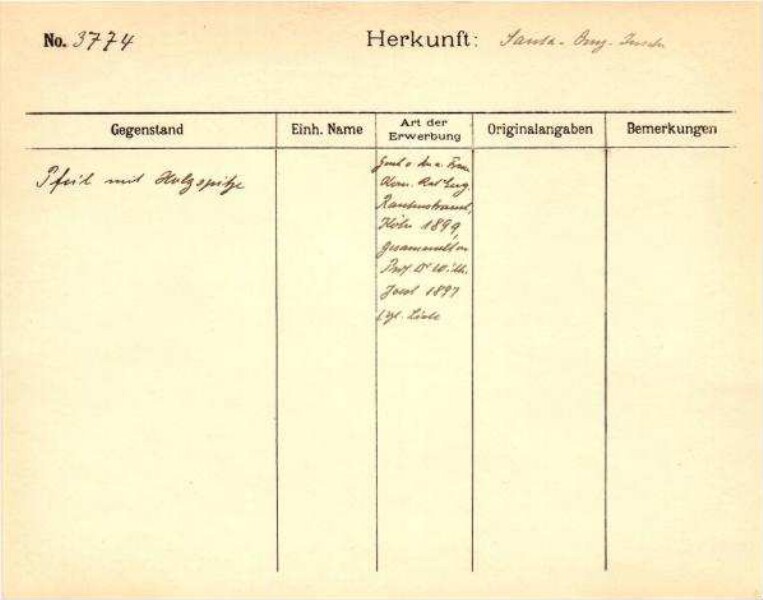 No. 3774
Herkunft: Santa-Cruz-Inseln
Gegenstand
Einh. Name
Art der Erwerbung
Originalangaben
Bemerkungen
Pfeil mit Holzspitze
Frau
Rautenstrauch,
1899,
gesammelt v
Prof Dr Wilh.
Joest 1897
vgl. Liste